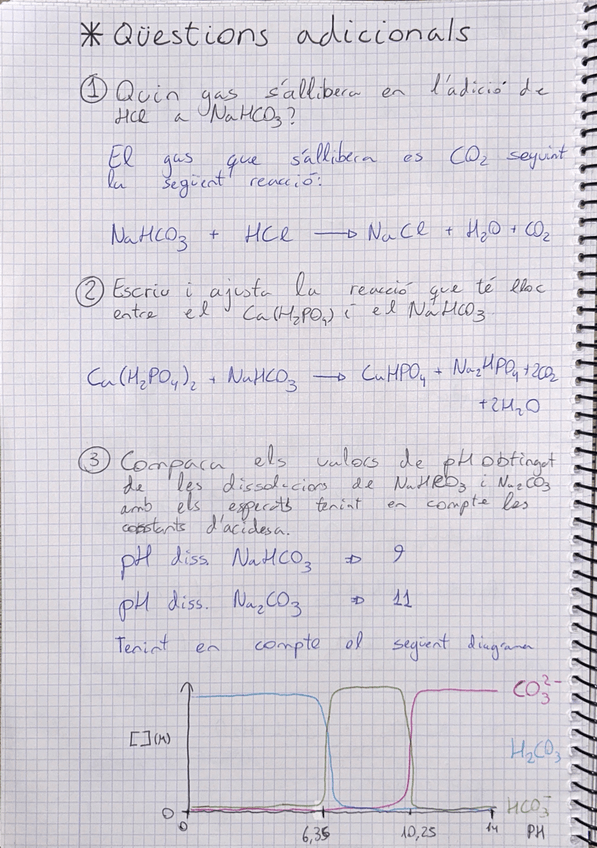 * Qüestions adicionals
① Quin gas s'allibera en l'adició de
HCl a NaHCO₃?
El gas que s'allibera es CO₂ seguint
la següent reacció:
NaHCO₃ + HCl → NaCl + H₂O + CO₂
② Escriu i ajusta la reacció que té lloc
entre el Ca(H₂PO₄) i el NaHCO₃.
Ca(H₂PO₄)₂ + NaHCO₃ → CaHPO₄ + Na₂HPO₄ + 2CO₂
+ 2H₂O
③ Compara els valors de pH obtingut
de les dissolucions de NaHCO₃ i Na₂CO₃
amb els esperats tenint en compte les
constants d'acidesa.
pH diss. NaHCO₃ ⇒ 9
pH diss. Na₂CO₃ ⇒ 11
Tenint en compte el següent diagrama
CO₃²⁻
[ ](M)
H₂CO₃
HCO₃⁻
0
0 6,35 10,25 14 PH